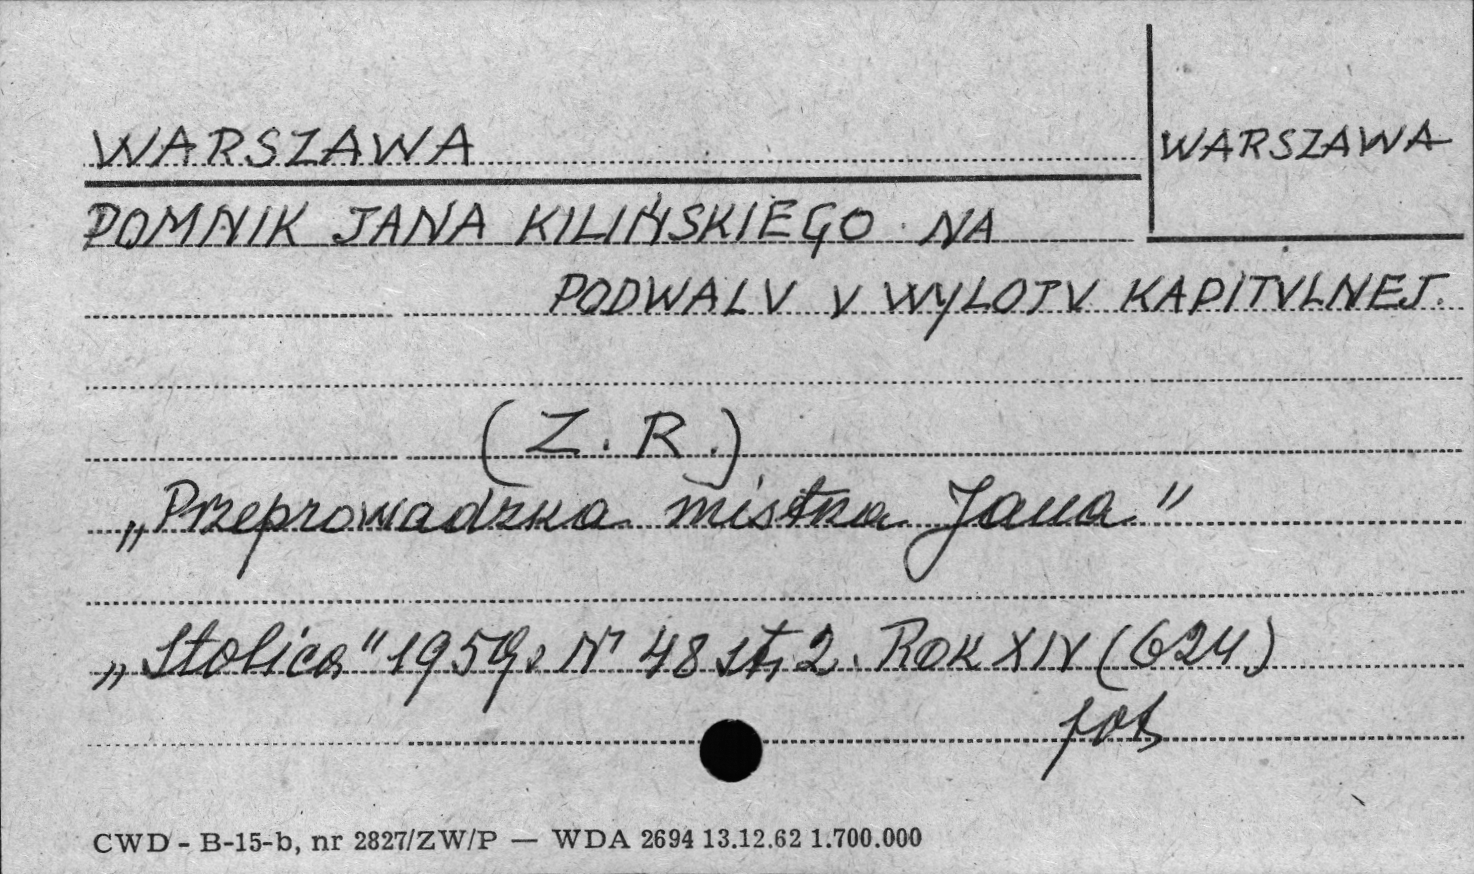 WARSZAWA
WARSZAWA
POMNIK JANA KILIŃSKIEGO NA
PODWALU U WYLOTU KAPITULNEJ.
(Z. R.)
„Przeprowadzka mistrza Jana"
„Stolica" 1959, Nr 48 st, 2. ROK XIV (624)
fot
CWD - B-15-b, nr 2827/ZW/P — WDA 2694 13.12.62 1.700.000